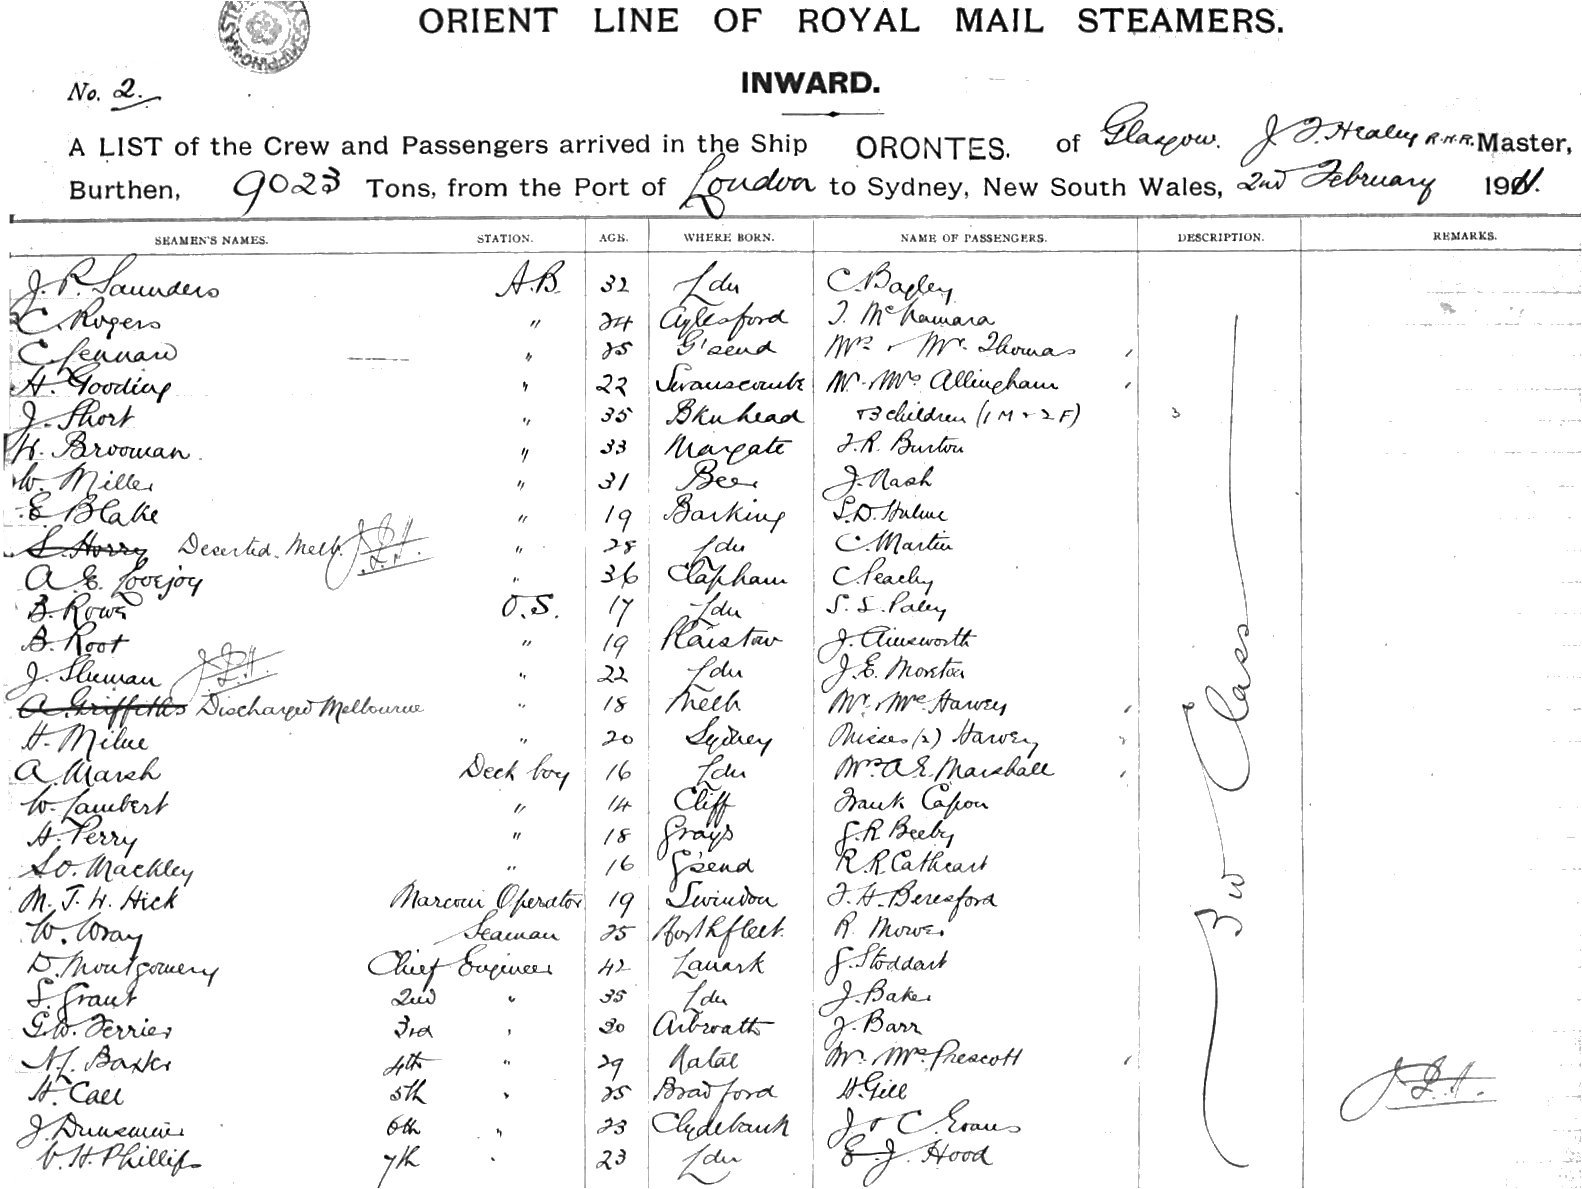 ORIENT LINE OF ROYAL MAIL STEAMERS.
No. 2.
INWARD.
A LIST of the Crew and Passengers arrived in the Ship ORONTES. of Glasgow. J F. Healey R.N.R. Master,
Burthen, 9023 Tons, from the Port of London to Sydney, New South Wales, 2nd February 1911.
SEAMEN'S NAMES. STATION. AGE. WHERE BORN. NAME OF PASSENGERS. DESCRIPTION. REMARKS.
J. P. Saunders A.B. 32 Ldn C. Bagley
C. Rogers " 24 Aylesford T. McNamara
C. Lennard " 25 G'send Mrs & Mr. Thomas
H. Gooding " 22 Swanscombe Mr. Mrs Allingham
J. Short " 35 B'knhead & 3 children (1 M & 2 F) 3
H. Brooman " 33 Margate F. R. Burton
W. Miller " 31 Beer J. Nash
E Blake " 19 Barking S. D. Hulme
S. Horry Deserted. Melb. J.F.H. " 28 Ldn C. Martin
A. E. Lovejoy " 36 Clapham C. Peachy
B. Rowe O.S. 17 Ldn S. S. Paley
B. Root " 19 Plaistow J. Ainsworth
J. Sluman J.F.H. " 22 Ldn J. E. Moreton
A. Griffiths Discharged Melbourne " 18 Melb Mr. Mrs Harvey
H. Milne " 20 Sydney Misses (2) Harvey 2
A. Marsh Deck boy 16 Ldn Mrs A. E. Marshall
W. Lambert " 14 Cliff Frank Capon
H. Perry " 18 Grays G. R Beeby
S. O. Mackley " 16 G'send R. R. Cathcart
M. T. H. Hick Marconi Operator 19 Swindon F. H. Beresford
W. Wray Seaman 25 Northfleet R. Mower
D. Montgomery Chief Engineer 42 Lanark G. Stoddart
S. Grant 2nd " 35 Ldn J. Baker
G. W. Ferrier 3rd " 30 Arbroath J. Barr
N. L. Baxter 4th " 29 Natal Mr. Mrs Prescott
H. Call 5th " 25 Bradford H. Gill
J. Dunsmuir 6th " 23 Clydebank J & C. Evans
V. H. Phillips 7th " 23 Ldn E. J. Hood
3rd Class
J.F.H.